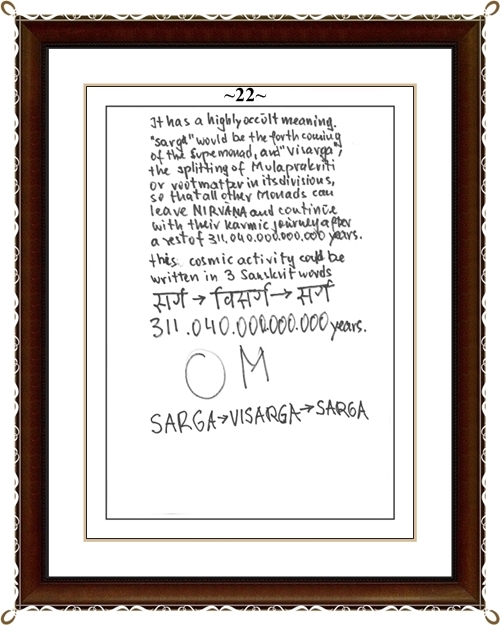 ~22~
It has a highly occult meaning.
"sarga" would be the forthcoming
of the Supemonad, and "Visarga",
the splitting of Mulaprakriti
or rootmatter in its divisions,
so that all other Monads can
leave NIRVANA and continue
with their karmic journey after
a rest of 311.040.000.000.000 years.
this cosmic activity could be
written in 3 Sanskrit words
सर्ग → विसर्ग → सर्ग
311.040.000.000.000 years.
OM
SARGA→VISARGA→SARGA